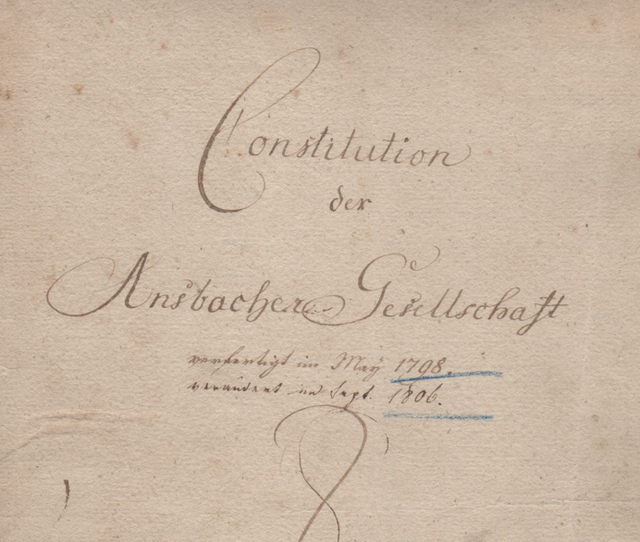 Constitution
der
Ansbacher Gesellschaft
verfertigt im May 1798.
verändert im Sept. 1806.